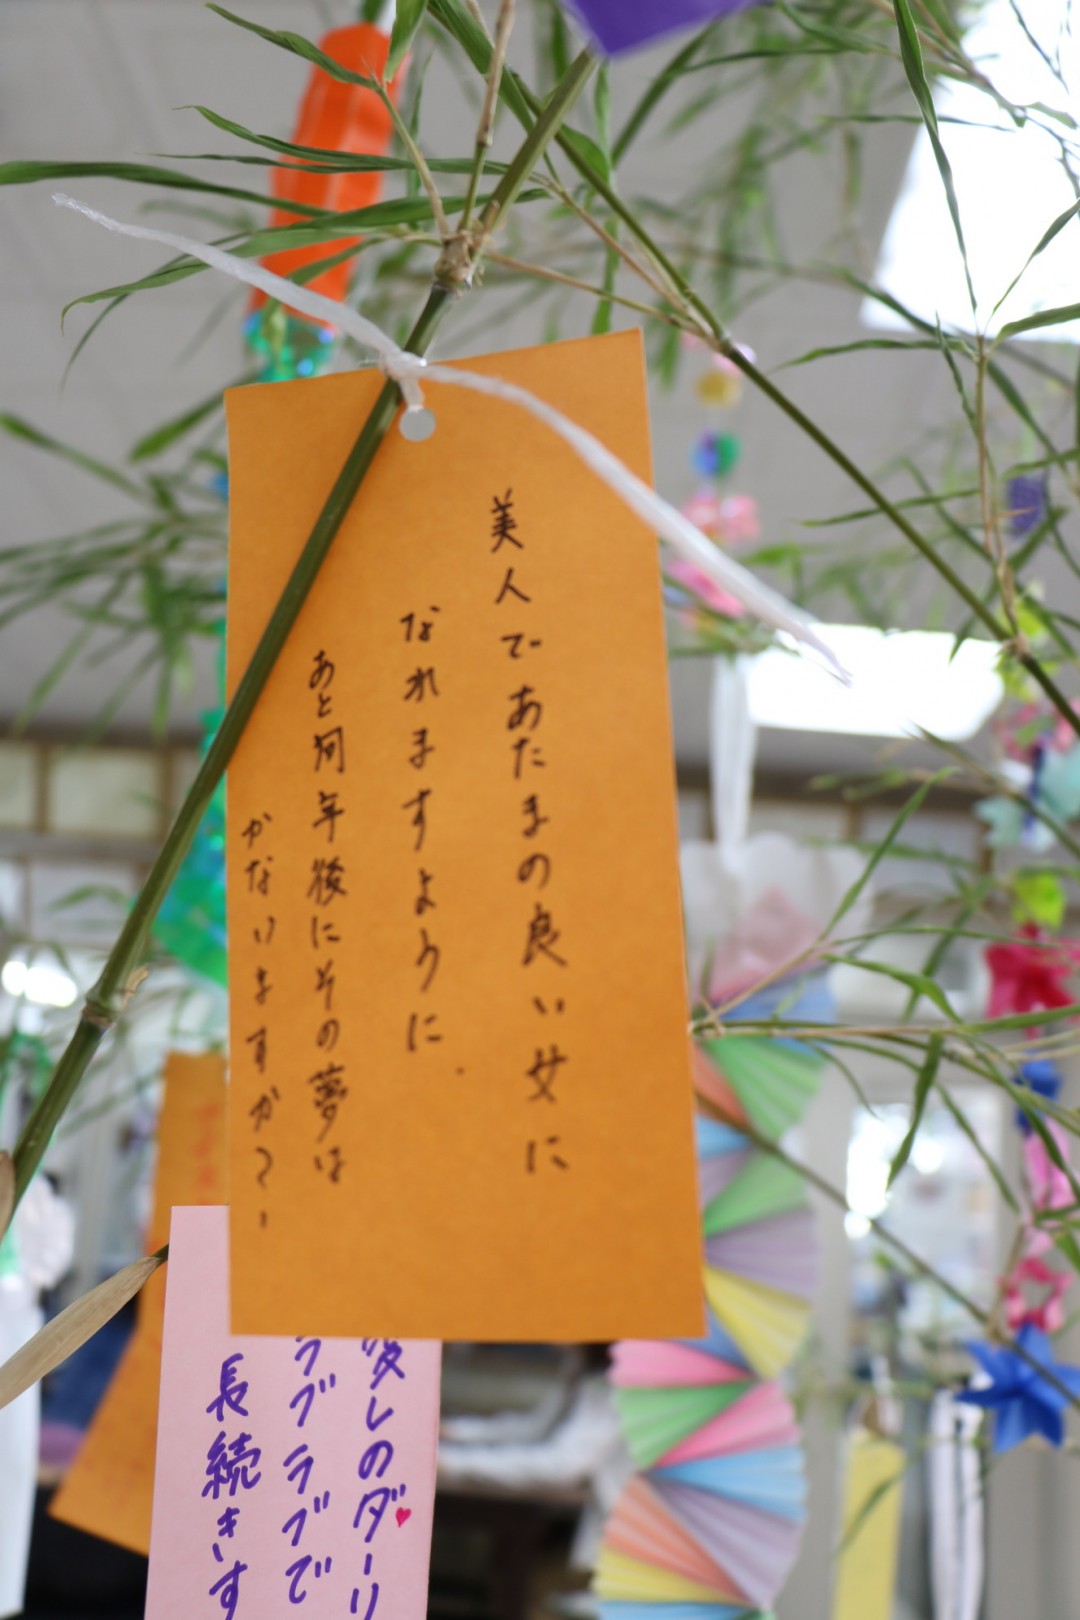 美人であたまの良い女に
なれますように.
あと何年後にその夢は
かないますか?
愛しのダーリ
ラブラブで
長続きす